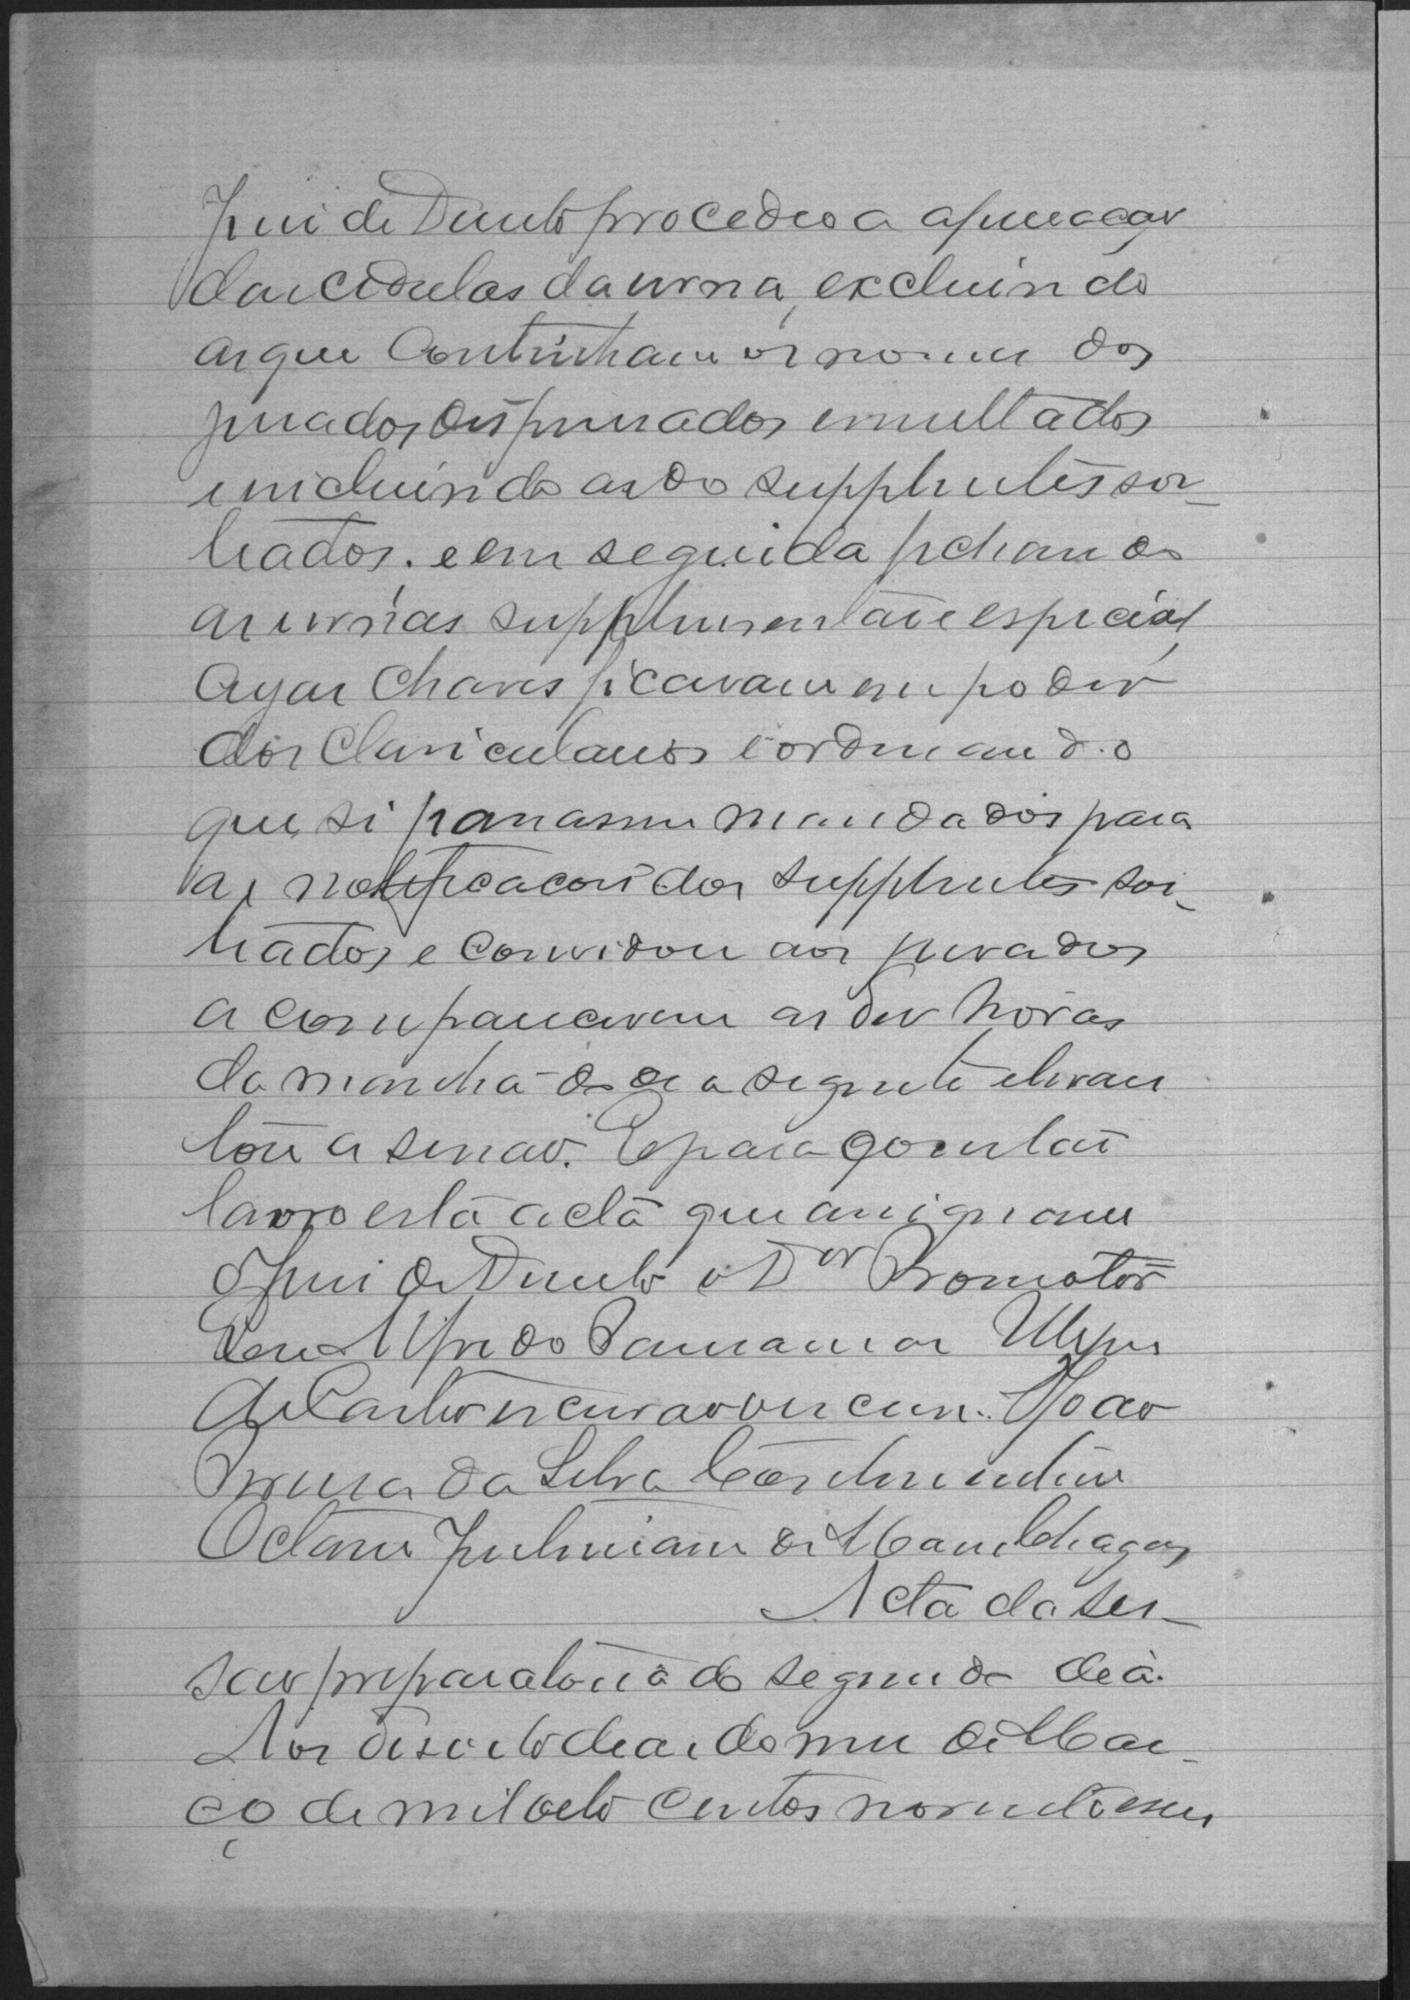 Juiz de Direito procedeo a apuração
das cedulas da urna, excluindo
as que continham os nomes dos
jurados dispensados e multados
e incluindo as dos supplentes sor-
teados. e em seguida fechando
as urnas supplementar e especial,
cujas chaves ficavam em poder
dos claviculários e ordenando
que se passassem mandados para
as notificações dos supplentes sor-
teados e convidou aos jurados
a comparecerem as dez horas
da manhã do dia seguinte e levan
tou a sessão. E para constar
lavro esta acta que assignam
o Juiz de Direito o Dor Promotor
Eu Alfredo
de Castro escrivão escrevi. João
Pereira da Silva
Octavio
Acta da ses-
são preparatoria do segundo dia.
Aos desoito dias do mez de Mar-
ço de mil oito centos noventa e seis